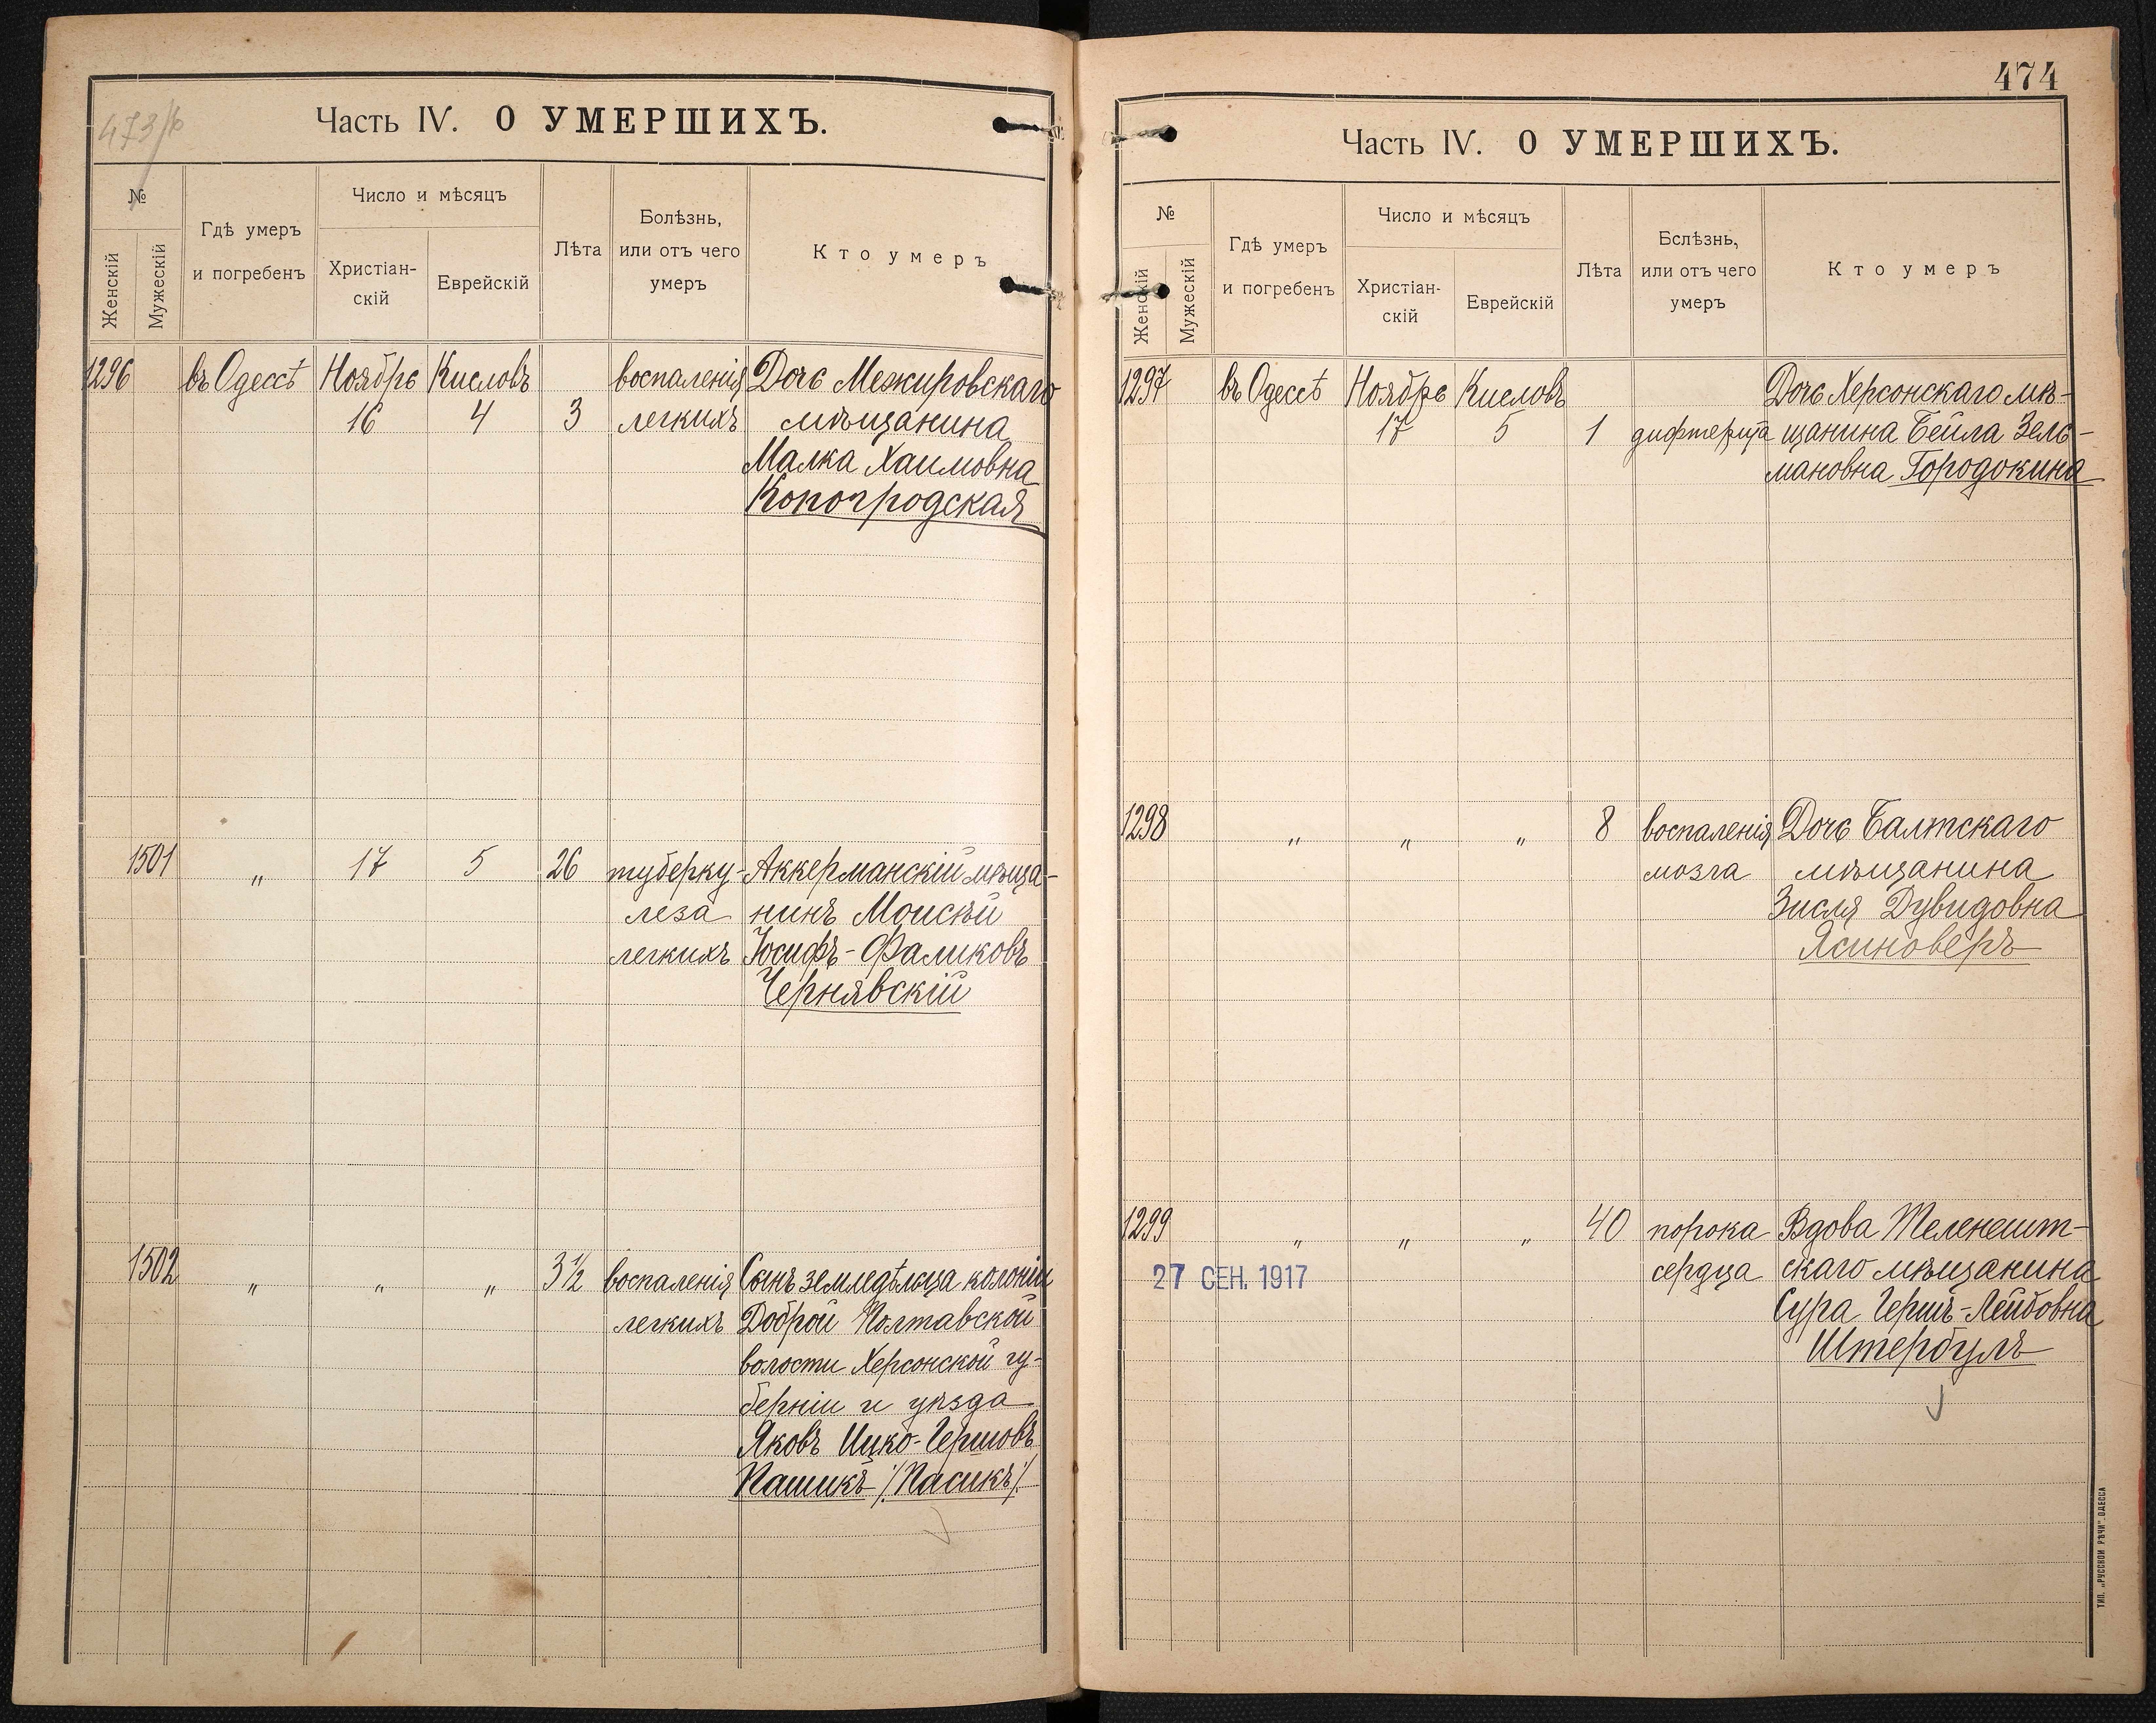 473/б
Часть IV. О УМЕРШИХЪ.
№
Женскій
Мужескій
Гдѣ умеръ
и погребенъ
Число и мѣсяцъ
Христіан-
скій
Еврейскій
Лѣта
Болѣзнь,
или отъ чего
умеръ
Кто умеръ
1296 въ Одессѣ Ноябрь Кислевъ воспаленія Дочь Межировскаго
16 4 3 легкихъ мѣщанина
Малка Хаимовна
Копогродская
1501 „ 17 5 26 туберку- Аккерманскій мѣща-
леза нинъ Моисѣй
легкихъ Іосифъ-Фаликовъ
Чернявскій
1502 „ „ „ 3½ воспаленія Сынъ земледѣльца колоніи
легкихъ Доброй Полтавской
волости Херсонской гу-
берніи и уѣзда
Яковъ Ицко-Гершовъ
Пашикъ /Пасикъ/
474
Часть IV. О УМЕРШИХЪ.
№
Женскій
Мужескій
Гдѣ умеръ
и погребенъ
Число и мѣсяцъ
Христіан-
скій
Еврейскій
Лѣта
Бслѣзнь,
или отъ чего
умеръ
Кто умеръ
1297 въ Одессѣ Ноябрь Кислевъ Дочь Херсонскаго мѣ-
17 5 1 дифтерита щанина Бейла Зель-
мановна Городокина
1298 „ „ „ 8 воспаленія Дочь Балтскаго
мозга мѣщанина
Зисля Дувидовна
Ясиноверъ
1299 „ „ „ 40 порока Вдова Теленешт-
27 СЕН. 1917 сердца скаго мѣщанина
Сура Гершъ-Лейбовна
Штербулъ
ТИП. „РУССКОЙ РѢЧИ“. ОДЕССА